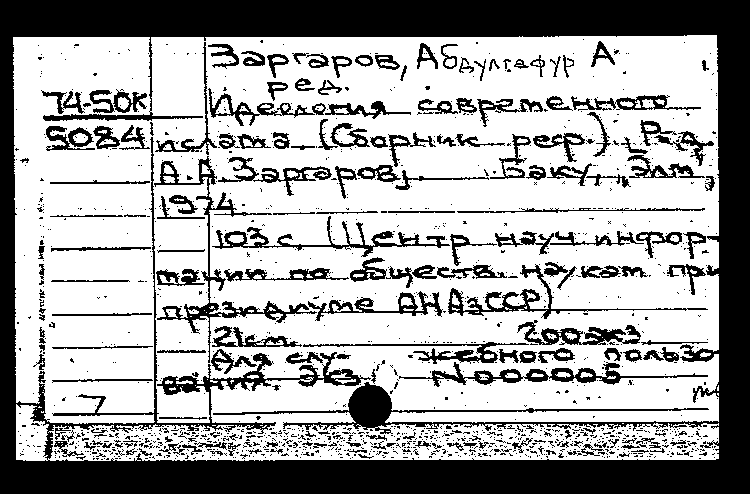 Заргаров, Абдулгафур А
ред.
74-50К Идеология современного
5084 ислама (Сборник реф.). [Ред.
А.А. Заргаров]. Баку, "Элм",
1974.
103 с. (Центр науч инфор-
мации по обществ. наукам при
президиуме АН АзССР).
21 см. 200 экз.
Для слу- жебного пользо-
вания. Экз. N 000005
7